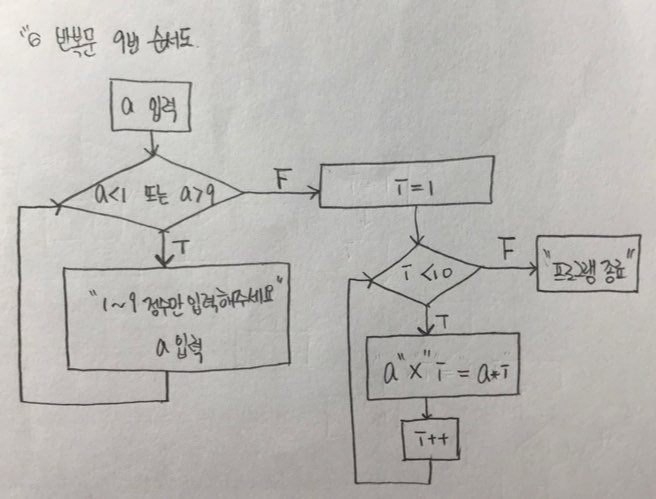 "6 반복문 9번 순서도.
a 입력
a<1 또는 a>9
F
i=1
T
"1~9 정수만 입력해주세요"
a 입력
i<10
F
"프로그램 종료"
T
a"x"i = a*i
i++